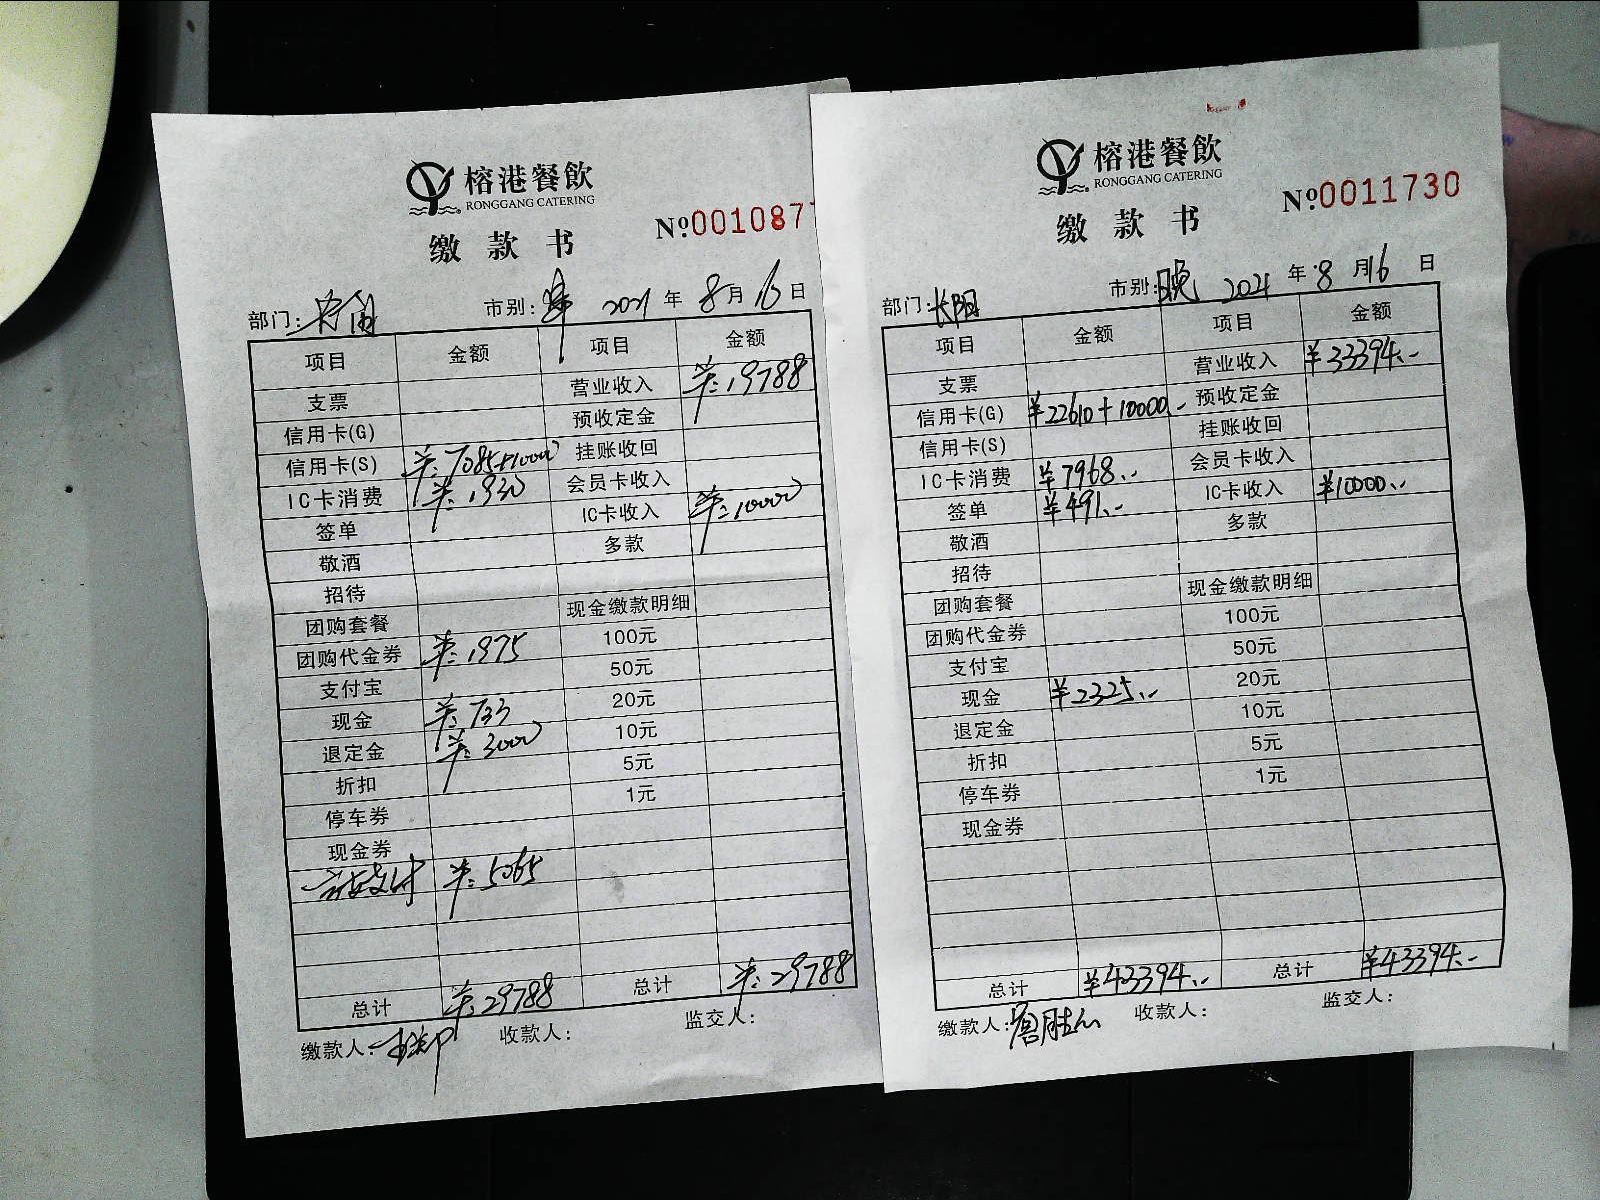 榕港餐飲
RONGGANG CATERING
缴款书
№001087
部门: 市别: 2021 年 8 月 16 日
项目 金额 项目 金额
支票 营业收入 ¥:19788
信用卡(G) 预收定金
信用卡(S) ¥:7085+10000 挂账收回
IC卡消费 ¥:1930 会员卡收入
签单 IC卡收入 ¥:10000
敬酒 多款
招待
团购套餐 现金缴款明细
团购代金券 ¥:1975 100元
支付宝 50元
现金 ¥:733 20元
退定金 ¥:3000 10元
折扣 5元
停车券 1元
现金券
支付 ¥:5065
总计 ¥:29788 总计 ¥:29788
缴款人: 收款人: 监交人:
榕港餐飲
RONGGANG CATERING
缴款书
№0011730
部门:长阳 市别:晚 2021 年 8 月 16 日
项目 金额 项目 金额
支票 营业收入 ¥33394.-
信用卡(G) ¥22610+10000.- 预收定金
信用卡(S) 挂账收回
IC卡消费 ¥7968.- 会员卡收入
签单 ¥491.- IC卡收入 ¥10000.-
敬酒 多款
招待
团购套餐 现金缴款明细
团购代金券 100元
支付宝 50元
现金 ¥2325.- 20元
退定金 10元
折扣 5元
停车券 1元
现金券
总计 ¥43394.- 总计 ¥43394.-
缴款人: 收款人: 监交人: